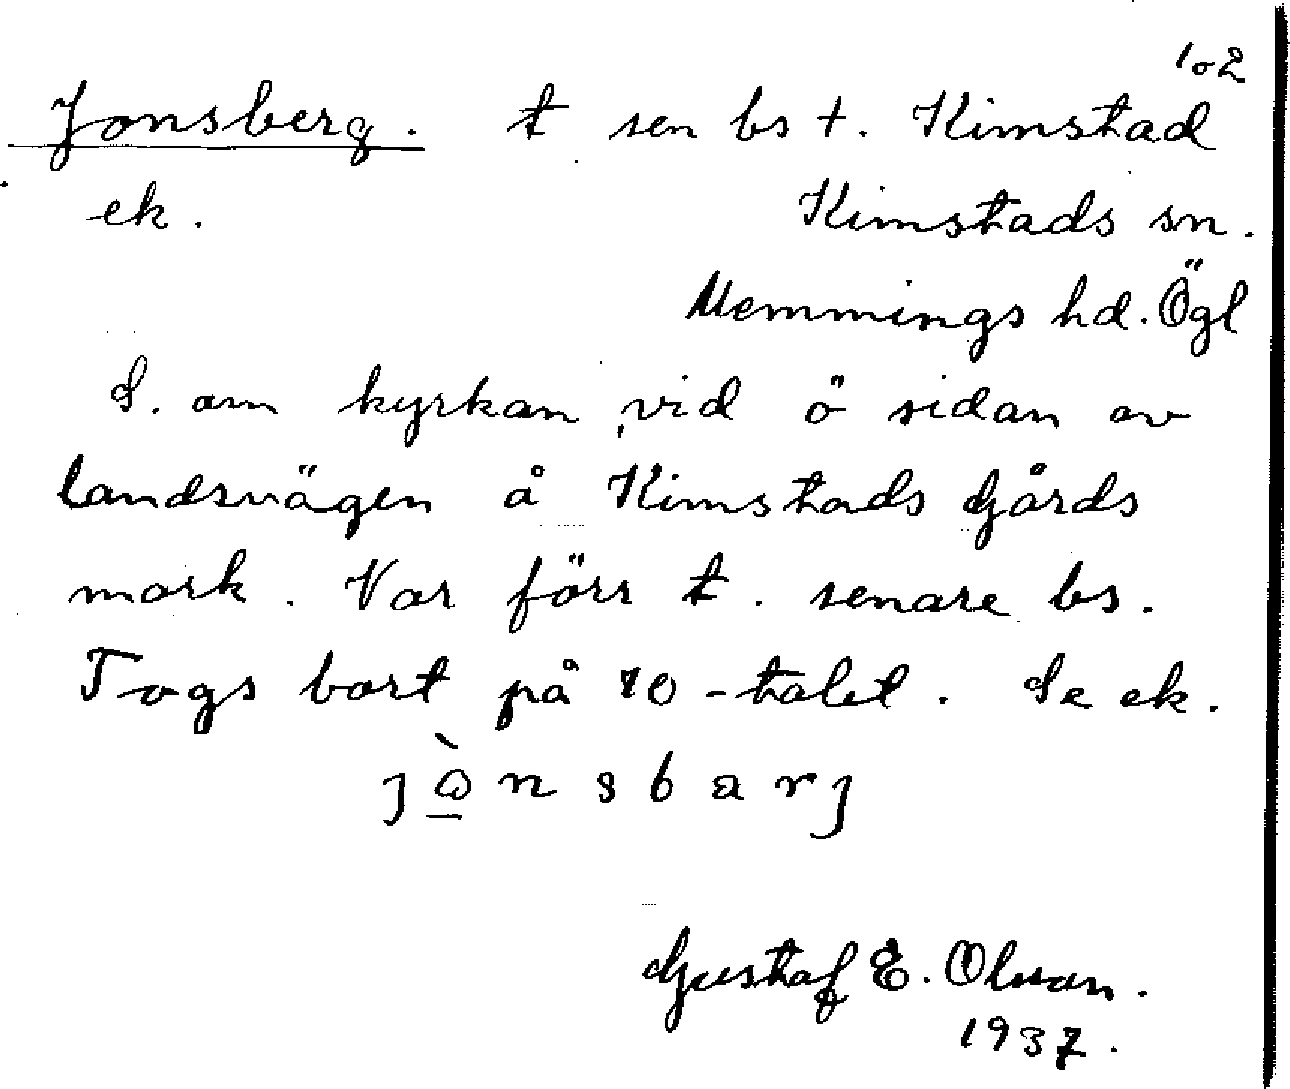 102
Jonsberg. t sen bs t. Kimstad
ek. Kimstads sn.
Memmings hd. Ögl
S. om kyrkan vid ö sidan av
landsvägen å Kimstads Gårds
mark. Var förr t. senare bs.
Togs bort på 70-talet. Se ek.
j ò n s b a r j
Gustaf E. Olsson.
1937.